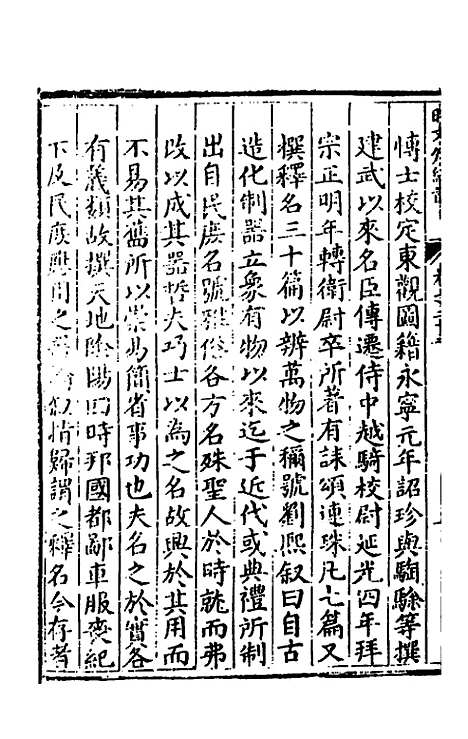 博士校定東觀圖籍永寧元年詔珍與騊駼等撰
建武以來名臣傳遷侍中越騎校尉延光四年拜
宗正明年轉衛尉卒所著有誄頌連珠凡七篇又
撰釋名三十篇以辨萬物之稱號劉熙叙曰自古
造化制器立象有物以來迄于近代或典禮所制
出自民庶名號雅俗各方名殊聖人於時就而弗
改以成其器哲夫巧士以為之名故興於其用而
不易其舊所以崇易簡省事功也夫名之於實各
有義類故撰天地陰陽四時邦國都鄙車服喪紀
下及民庶應用之器論叙情歸謂之釋名今存者